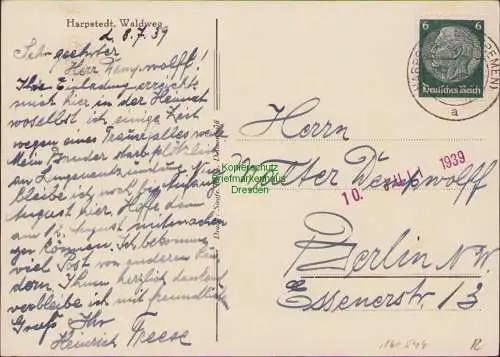 Harpstedt, Waldweg
d. 8.7.39
Sehr geehrter
Herr Dempwolff!
Ihre Einladung erreichte
mich hier in der Heimat
woselbst ich einige Zeit
wegen eines
Mein Bruder starb plötzlich
an Lungenentzündung. Nun
bleibe ich noch bis Anfang
August hier. Hoffe dann
am August mitmachen
zu können. Ich bekomme
viel Post von anderen
dern. Ihnen herzlich dankend
verbleibe ich mit freundlichem
Gruß Ihr
Heinrich Freese
6 6
Deutsches Reich
BREMEN)
a
Herrn
Walter Dempwolff
10. JULI 1939
Berlin N.W.
Essenerstr. 13
Kopierschutz
Briefmarkenhaus
Dresden